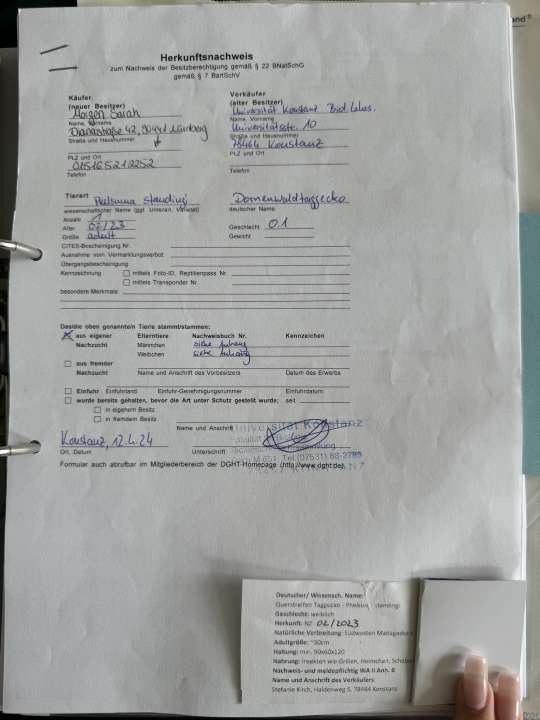 Herkunftsnachweis
zum Nachweis der Besitzberechtigung gemäß § 22 BNatSchG
gemäß § 7 BArtSchV
Käufer
(neuer Besitzer)
Sarah
Name, Vorname
Dianastraße 42, 90441 Nürnberg
Straße und Hausnummer
PLZ und Ort
015165212252
Telefon
Verkäufer
(alter Besitzer)
Universität Konstanz Biol.
Name, Vorname
Universitätsstr. 10
Straße und Hausnummer
78464 Konstanz
PLZ und Ort
Telefon
Tierart Phelsuma standingi Dornenwaldtaggecko
wissenschaftlicher Name (ggf. Unterart, Varietät) deutscher Name
Anzahl 1
Alter 02/23 Geschlecht 0.1
Größe adult Gewicht
CITES-Bescheinigung Nr.
Ausnahme vom Vermarktungsverbot:
Übergangsbescheinigung:
Kennzeichnung mittels Foto-ID, Reptilienpass Nr.
mittels Transponder Nr.
besondere Merkmale:
Das/die oben genannte/n Tier/e stammt/stammen:
aus eigener Elterntiere Nachweisbuch Nr. Kennzeichen
Nachzucht Männchen siehe Anhang
Weibchen siehe Anhang
aus fremder
Nachzucht Name und Anschrift des Vorbesitzers Datum des Erwerbs
Einfuhr Einfuhrland Einfuhr-Genehmigungsnummer Einfuhrdatum:
wurde bereits gehalten, bevor die Art unter Schutz gestellt wurde; seit
in eigenem Besitz
in fremdem Besitz
Name und Anschrift Universität Konstanz
Konstanz, 12.4.24
Tel. (07531) 88-
Ort, Datum Unterschrift
Formular auch abrufbar im Mitgliederbereich der DGHT-Homepage (http://www.dght.de).
Deutscher/ Wissensch. Name:
Querstreifen Taggecko - Phelsuma standingi
Geschlecht: weiblich
Herkunft: NZ 02/2023
Natürliche Verbreitung: Südwesten Madagaskars
Adultgröße: ~30cm
Haltung: min. 90x60x120
Nahrung: Insekten wie Grillen, Heimchen,
Nachweis- und meldepflichtig WA II Anh. B
Name und Anschrift des Verkäufers:
Stefanie Kirch, Haldenweg 5, 78464 Konstanz